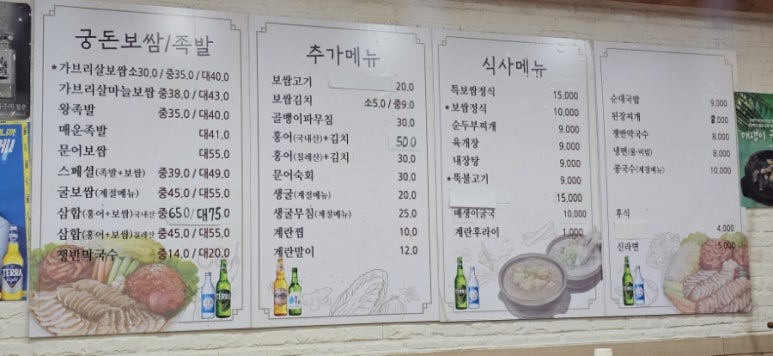 궁돈보쌈/족발
*가브리살보쌈소30.0/중35.0/대40.0
가브리살마늘보쌈 중38.0/대43.0
왕족발 중35.0/대40.0
매운족발 대41.0
문어보쌈 대55.0
스페셜(족발+보쌈) 중39.0/대49.0
굴보쌈(계절메뉴) 중45.0/대55.0
삼합(홍어+보쌈)국내산 중65.0/대75.0
삼합(홍어+보쌈)칠레산 중45.0/대55.0
쟁반막국수 중14.0/대20.0
TERRA
추가메뉴
보쌈고기 20.0
보쌈김치 소5.0/중9.0
골뱅이파무침 30.0
홍어(국내산)+김치 50.0
홍어(칠레산)+김치 30.0
문어숙회 30.0
생굴(계절메뉴) 20.0
생굴무침(계절메뉴) 25.0
계란찜 10.0
계란말이 12.0
식사메뉴
특보쌈정식 15,000
*보쌈정식 10,000
순두부찌개 9,000
육개장 9,000
내장탕 9,000
*뚝불고기 9,000
15,000
매생이굴국 10,000
계란후라이 1,000
순대국밥 9,000
된장찌개 8,000
쟁반막국수 8,000
냉면(물·비빔) 8,000
콩국수(계절메뉴) 10,000
후식
4,000
신라면 5,000
TERRA